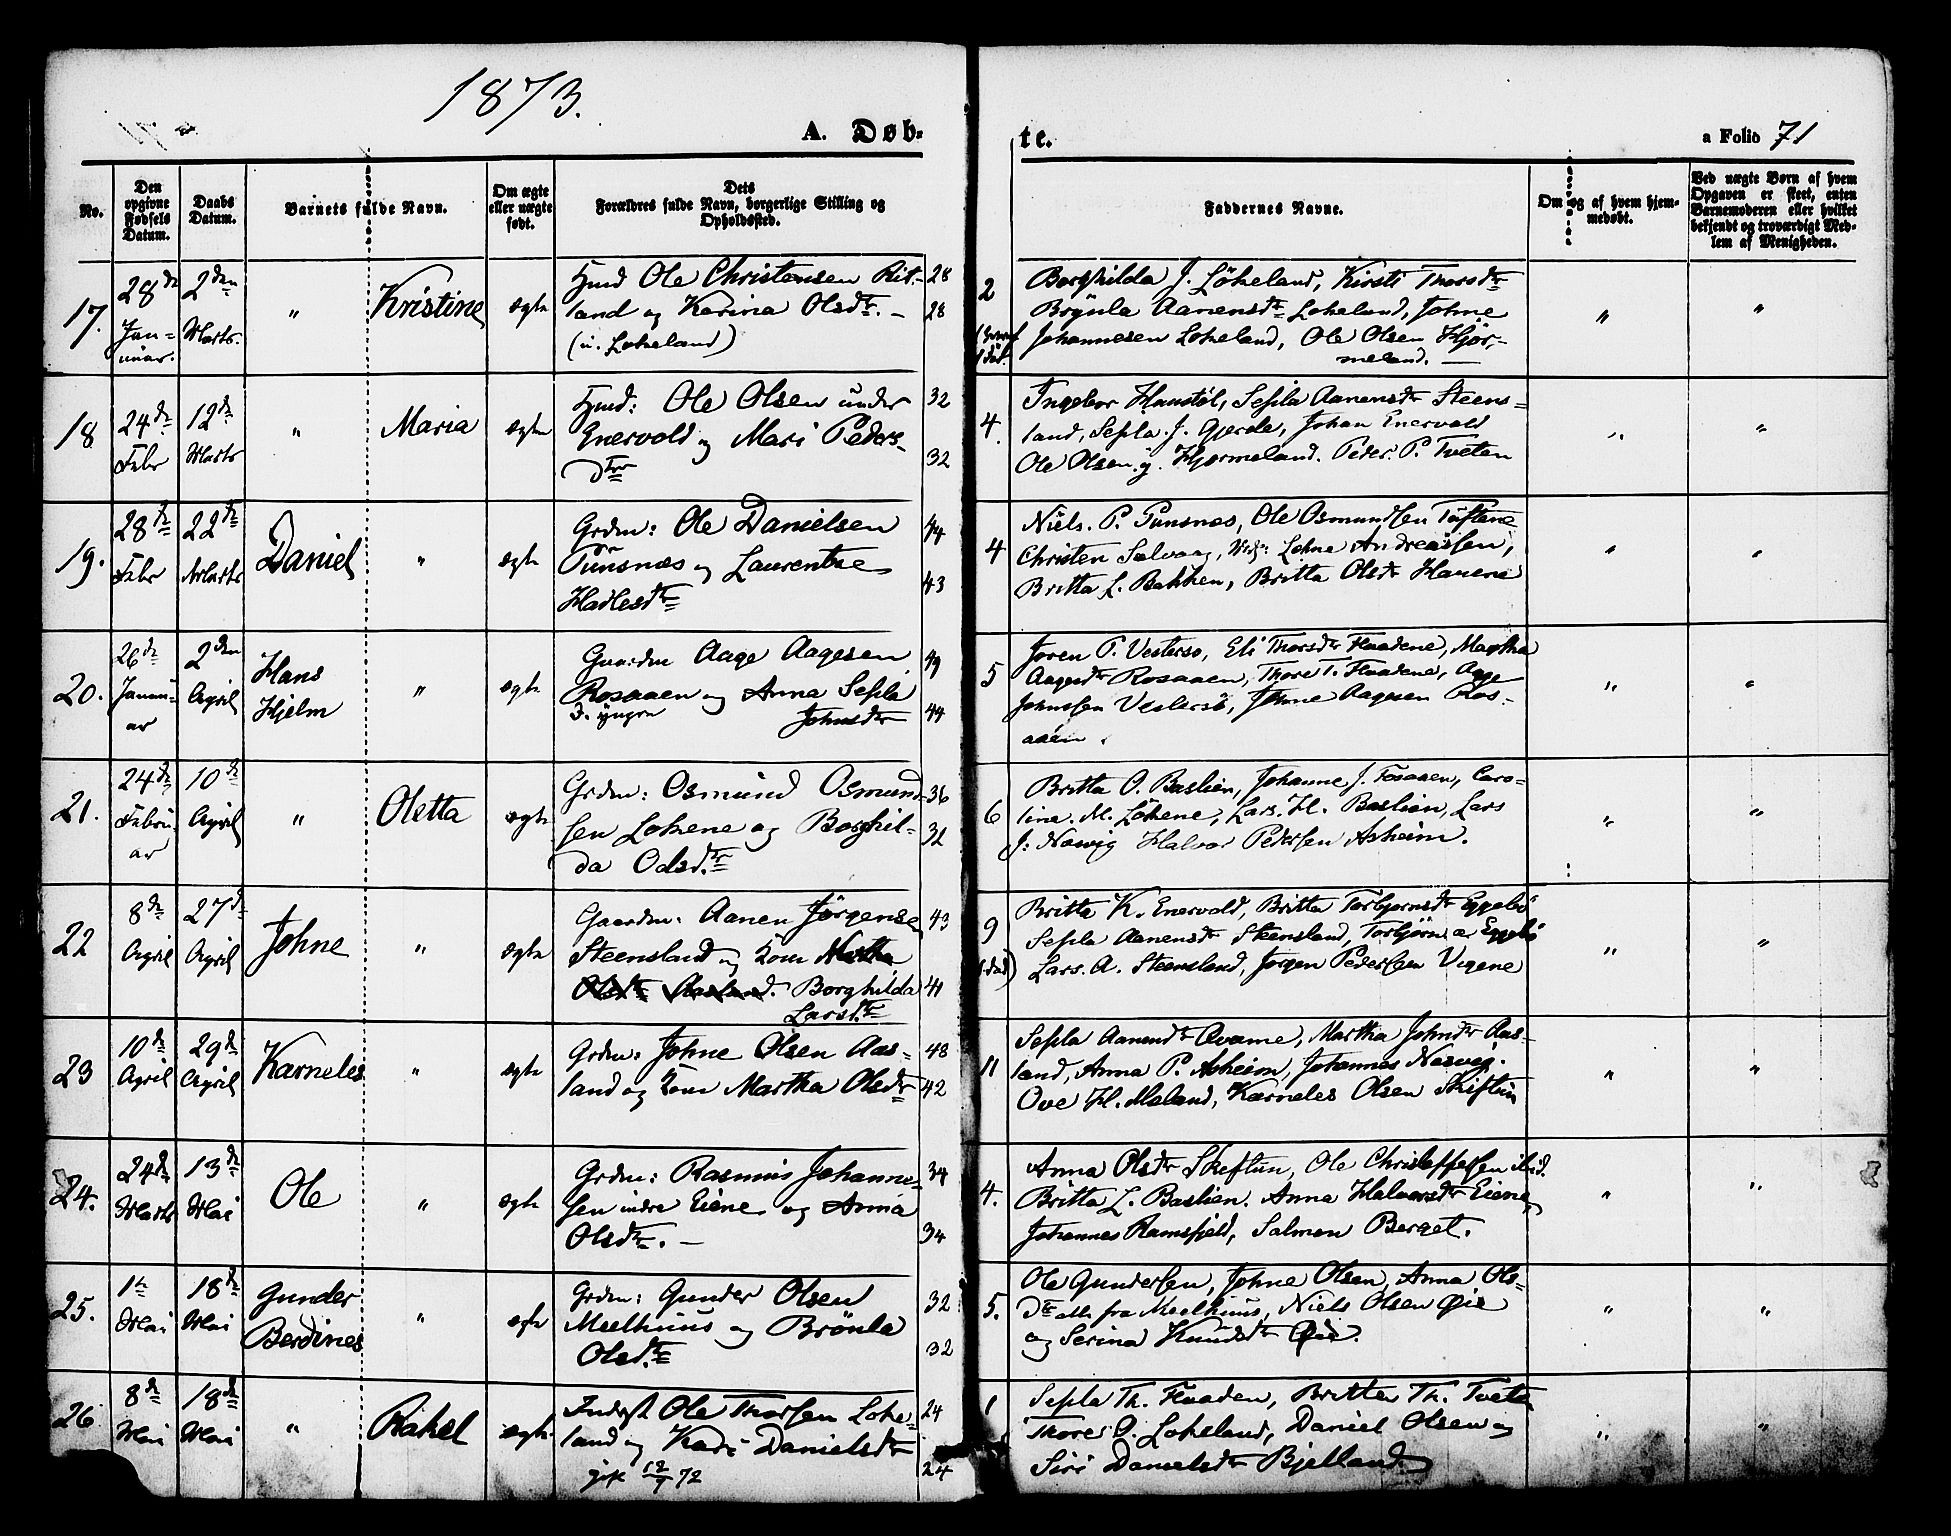 1873.
A. Døb-
te.
a Folio 71
No.
Den opgivne Fødsels Datum.
Daabs Datum.
Barnets fulde Navn.
Om ægte eller uægte født.
Dets Forældres fulde Navn, borgerlige Stilling og Opholdssted.
Faddernes Navne.
Om og af hvem hjemmedøbt.
Ved uægte Børn af hvem Opgaven er skeet, enten Barnemoderen eller hvilket bekjendt og troværdigt Medlem af Menigheden.
17. 28de Januar. 2den Marts. " Kristine ægte
Hmd Ole Christensen Rit- 28
land og Karina Olsdtr. – 28
(u. Lokeland)
2
Borghilda J. Lökeland, Kirsti Thorsdtr
Brynla Aanensdtr Lokeland, Johne
Johannesen Lokeland, Ole Olsen Hjor-
meland. —
" "
18 24de Febr 12te Marts " Maria ægte
Hmd: Ole Olsen under 32
Enervold og Mari Peders- 32
dtr
4.
Ingebor Haustöl, Sepla Aanensdtr Steens-
land, Sepla J. Gjerde, Johan Enervold
Ole Olsen y. Hjormeland. Peder P. Tveten
" "
19. 28de Febr 22de Marts Daniel " ægte
Grdm: Ole Danielsen 44
Tunsnæs og Laurentse 43
Hadlesdtr
4
Niels. P. Tunsnes, Ole Osmundsen Tuftene
Christen Salvaag, Lohne Andreassen,
Britta L. Bakken, Britta Olsdr Hauene
" "
20. 26de Januar 2den April Hans Hjelm " ægte
Gaardm Aage Aagesen 49
Rosaaen og Anna Sepla 44
3. yngre Johnsdtr
5
Joren P. Vesterso, Eli Thorsdtr Haadene, Martha
Aagesdtr Rosaaen, Thore T. Haadene, Aage
Johnssen Vestersö, Johne Aagesen Ros-
aaen.
" "
21. 24de Februar 10de April " Oletta ægte
Grdm: Osmund Osmund- 36
sen Lokene og Borghil- 31
da Odsd.tr
6
Britta O. Bastlien, Johanne J. Fosaaen, Caro-
line. M. Lökene, Lars. H. Bastlien, Lars
J: Nawig Halvor Pedersen Asheim.
" "
22 8de April 27de April Johne " ægte
Gaardm: Aanen Jörgensen 43
Steensland og Kone Martha
Olsdtr Aasland. Borghilda 41
Larsd.tr
9
Britta K. Enervold, Britta Torbjornsdtr Eggebö
Sepla Aanensdtr Steensland, Torbjörn Eggebö
Lars. A. Steensland, Jorgen Pedersen Vigene
" "
23 10de April 29de April Karneles " ægte
Grdm: Johne Olsen Aas- 48
land og Kone Martha Olsdtr 42
11
Sepla Aanensdtr Qvame, Martha Johnsdtr Aas-
land, Anna P. Asheim, Johannes Nasvig.
Ove H. Meland, Karneles Olsen Skiftun
" "
24. 24de Marts 13de Mai Ole " ægte
Grdm: Rasmus Johanne- 34
sen indre Eiene og Anna 34
Olsdtr. –
4.
Anna Olsdr Skeftun, Ole Christoffersen ibid.
Britta L. Bastlien. Anna Halvorsdtr Eiene,
Johannes Ramsfjeld, Salmon Berget.
" "
25. 1ste Mai 18de Mai Gunder Berdines " ægte
Grdm: Gunder Olsen 32
Meelhuus og Brönla 32
Olsd.tr
5.
Ole Gundersen, Johne Olsen, Anna Ols-
dtr alle fra Meelhuus, Niels Olsen Øie
og Serina Knudsdtr Øie.
" "
26 8de Mai 18de Mai " Rakel ægte
Inderst Ole Thorsen Loke- 24
land og Kari Danielsdtr 24
gift 12/7 72
1
Sepla Th. Haaden, Britta Th. Tveta
Thore O. Lokeland, Daniel Olsen og
Siri Danielsdtr Bjelland
" "